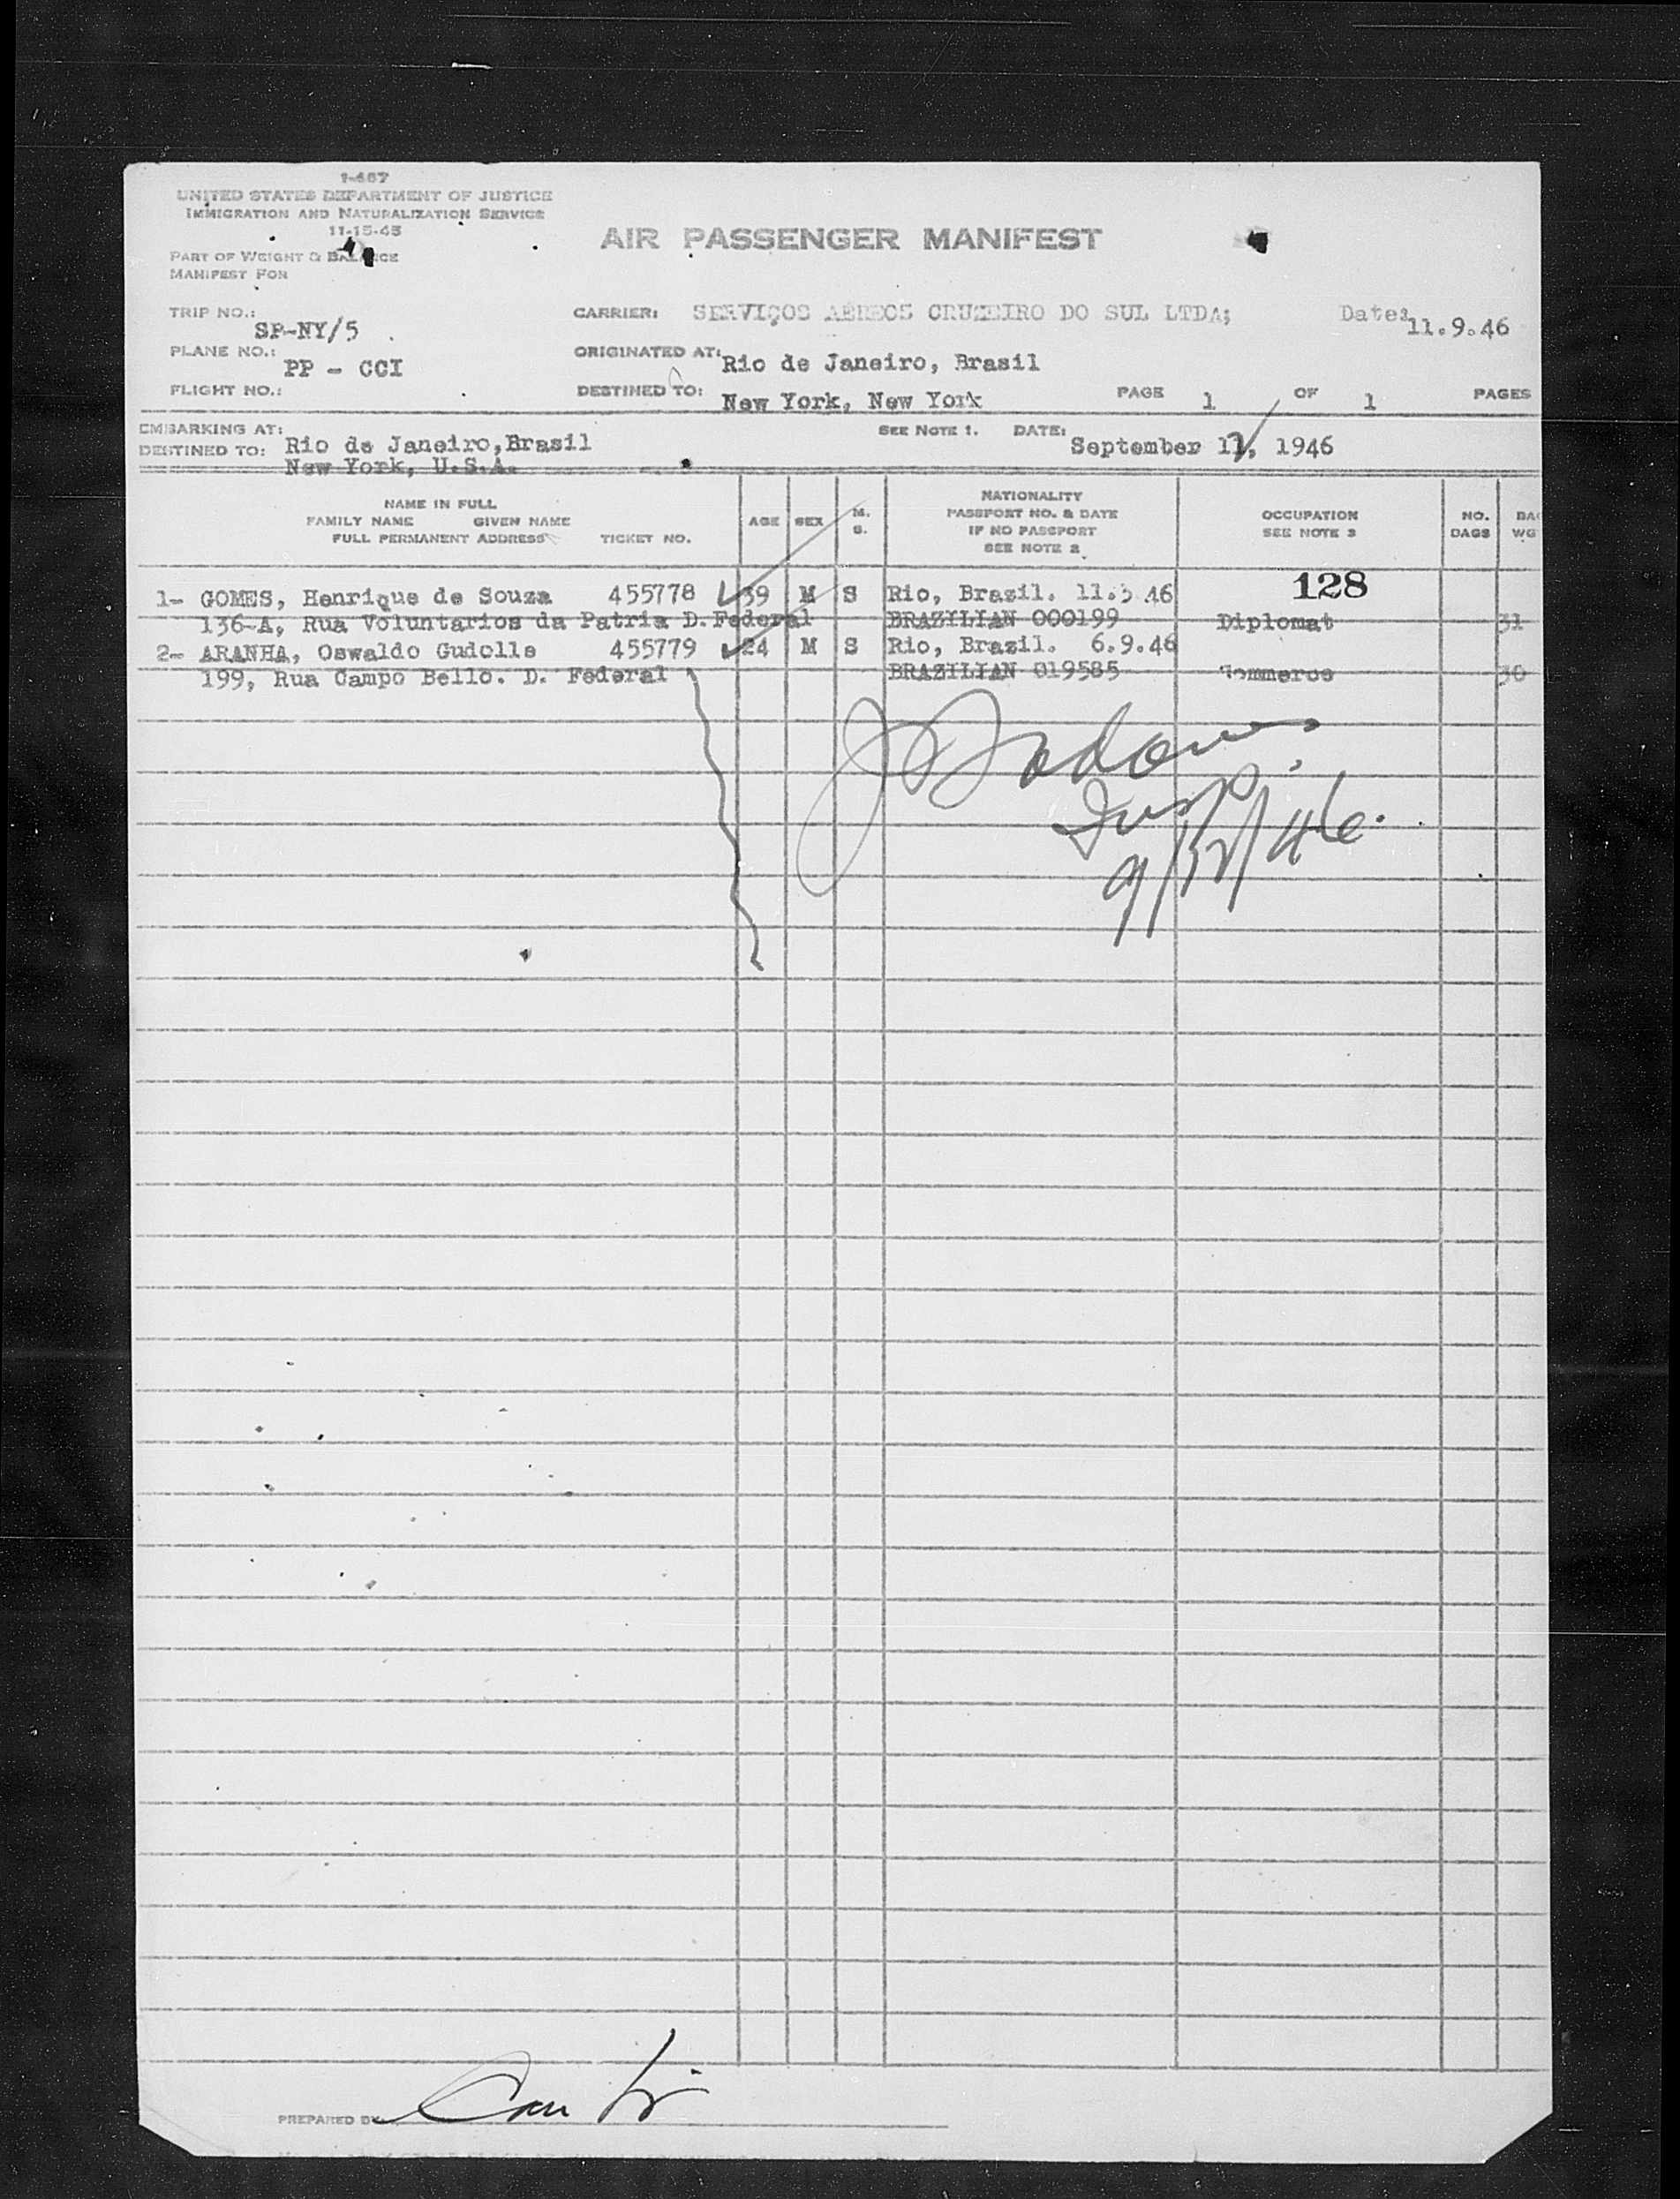 I-467
UNITED STATES DEPARTMENT OF JUSTICE
IMMIGRATION AND NATURALIZATION SERVICE
11-15-45
AIR PASSENGER MANIFEST
PART OF WEIGHT & BALANCE
MANIFEST FOR
TRIP NO.: SP-NY/5 CARRIER: SERVIÇOS AÉREOS CRUZEIRO DO SUL LTDA; Date: 11.9.46
PLANE NO.: PP - CCI ORIGINATED AT: Rio de Janeiro, Brasil
FLIGHT NO.: DESTINED TO: New York, New York PAGE 1 OF 1 PAGES
EMBARKING AT: Rio de Janeiro, Brasil SEE NOTE 1. DATE: September 1, 1946
DESTINED TO: New York, U.S.A.
NAME IN FULL
FAMILY NAME GIVEN NAME
FULL PERMANENT ADDRESS TICKET NO. AGE SEX M. S. NATIONALITY PASSPORT NO. & DATE IF NO PASSPORT SEE NOTE 2 OCCUPATION SEE NOTE 3 NO. BAGS BAG WG
128
1- GOMES, Henrique de Souza 455778 39 M S Rio, Brazil. 11.3.46
136-A, Rua Voluntarios da Patria D. Federal BRAZILIAN 000199 Diplomat 31
2- ARANHA, Oswaldo Gudolle 455779 24 M S Rio, Brazil. 6.9.46
199, Rua Campo Bello. D. Federal BRAZILIAN 019585 Commerce 30
Insp.
9/12/46.
PREPARED BY